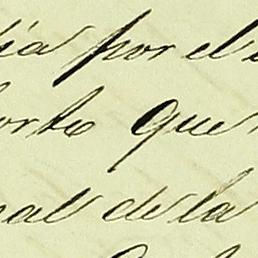 ia por el
orte que
nal de la